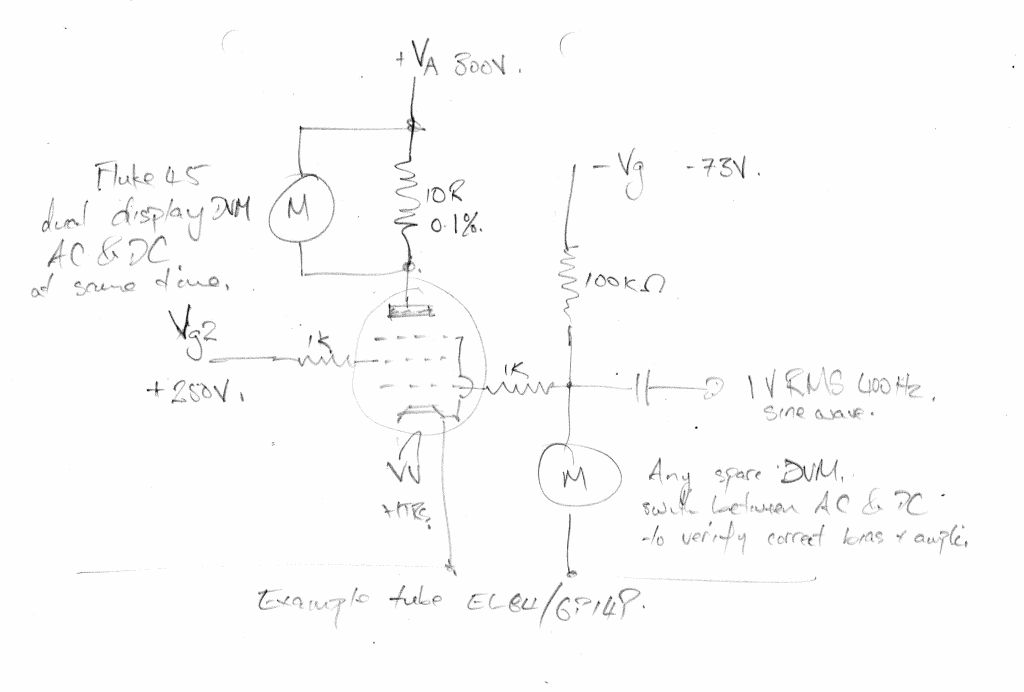 +VA 300V.
-Vg -73V.
Fluke 45
dual display DVM
AC & DC
at same time.
M
10R
0.1%.
100KΩ
Vg2
+250V.
1K
1K
1V RMS 400Hz.
sine wave.
M
Any spare DVM.
switch between AC & DC
to verify correct bias &
Example tube EL84/6P14P.